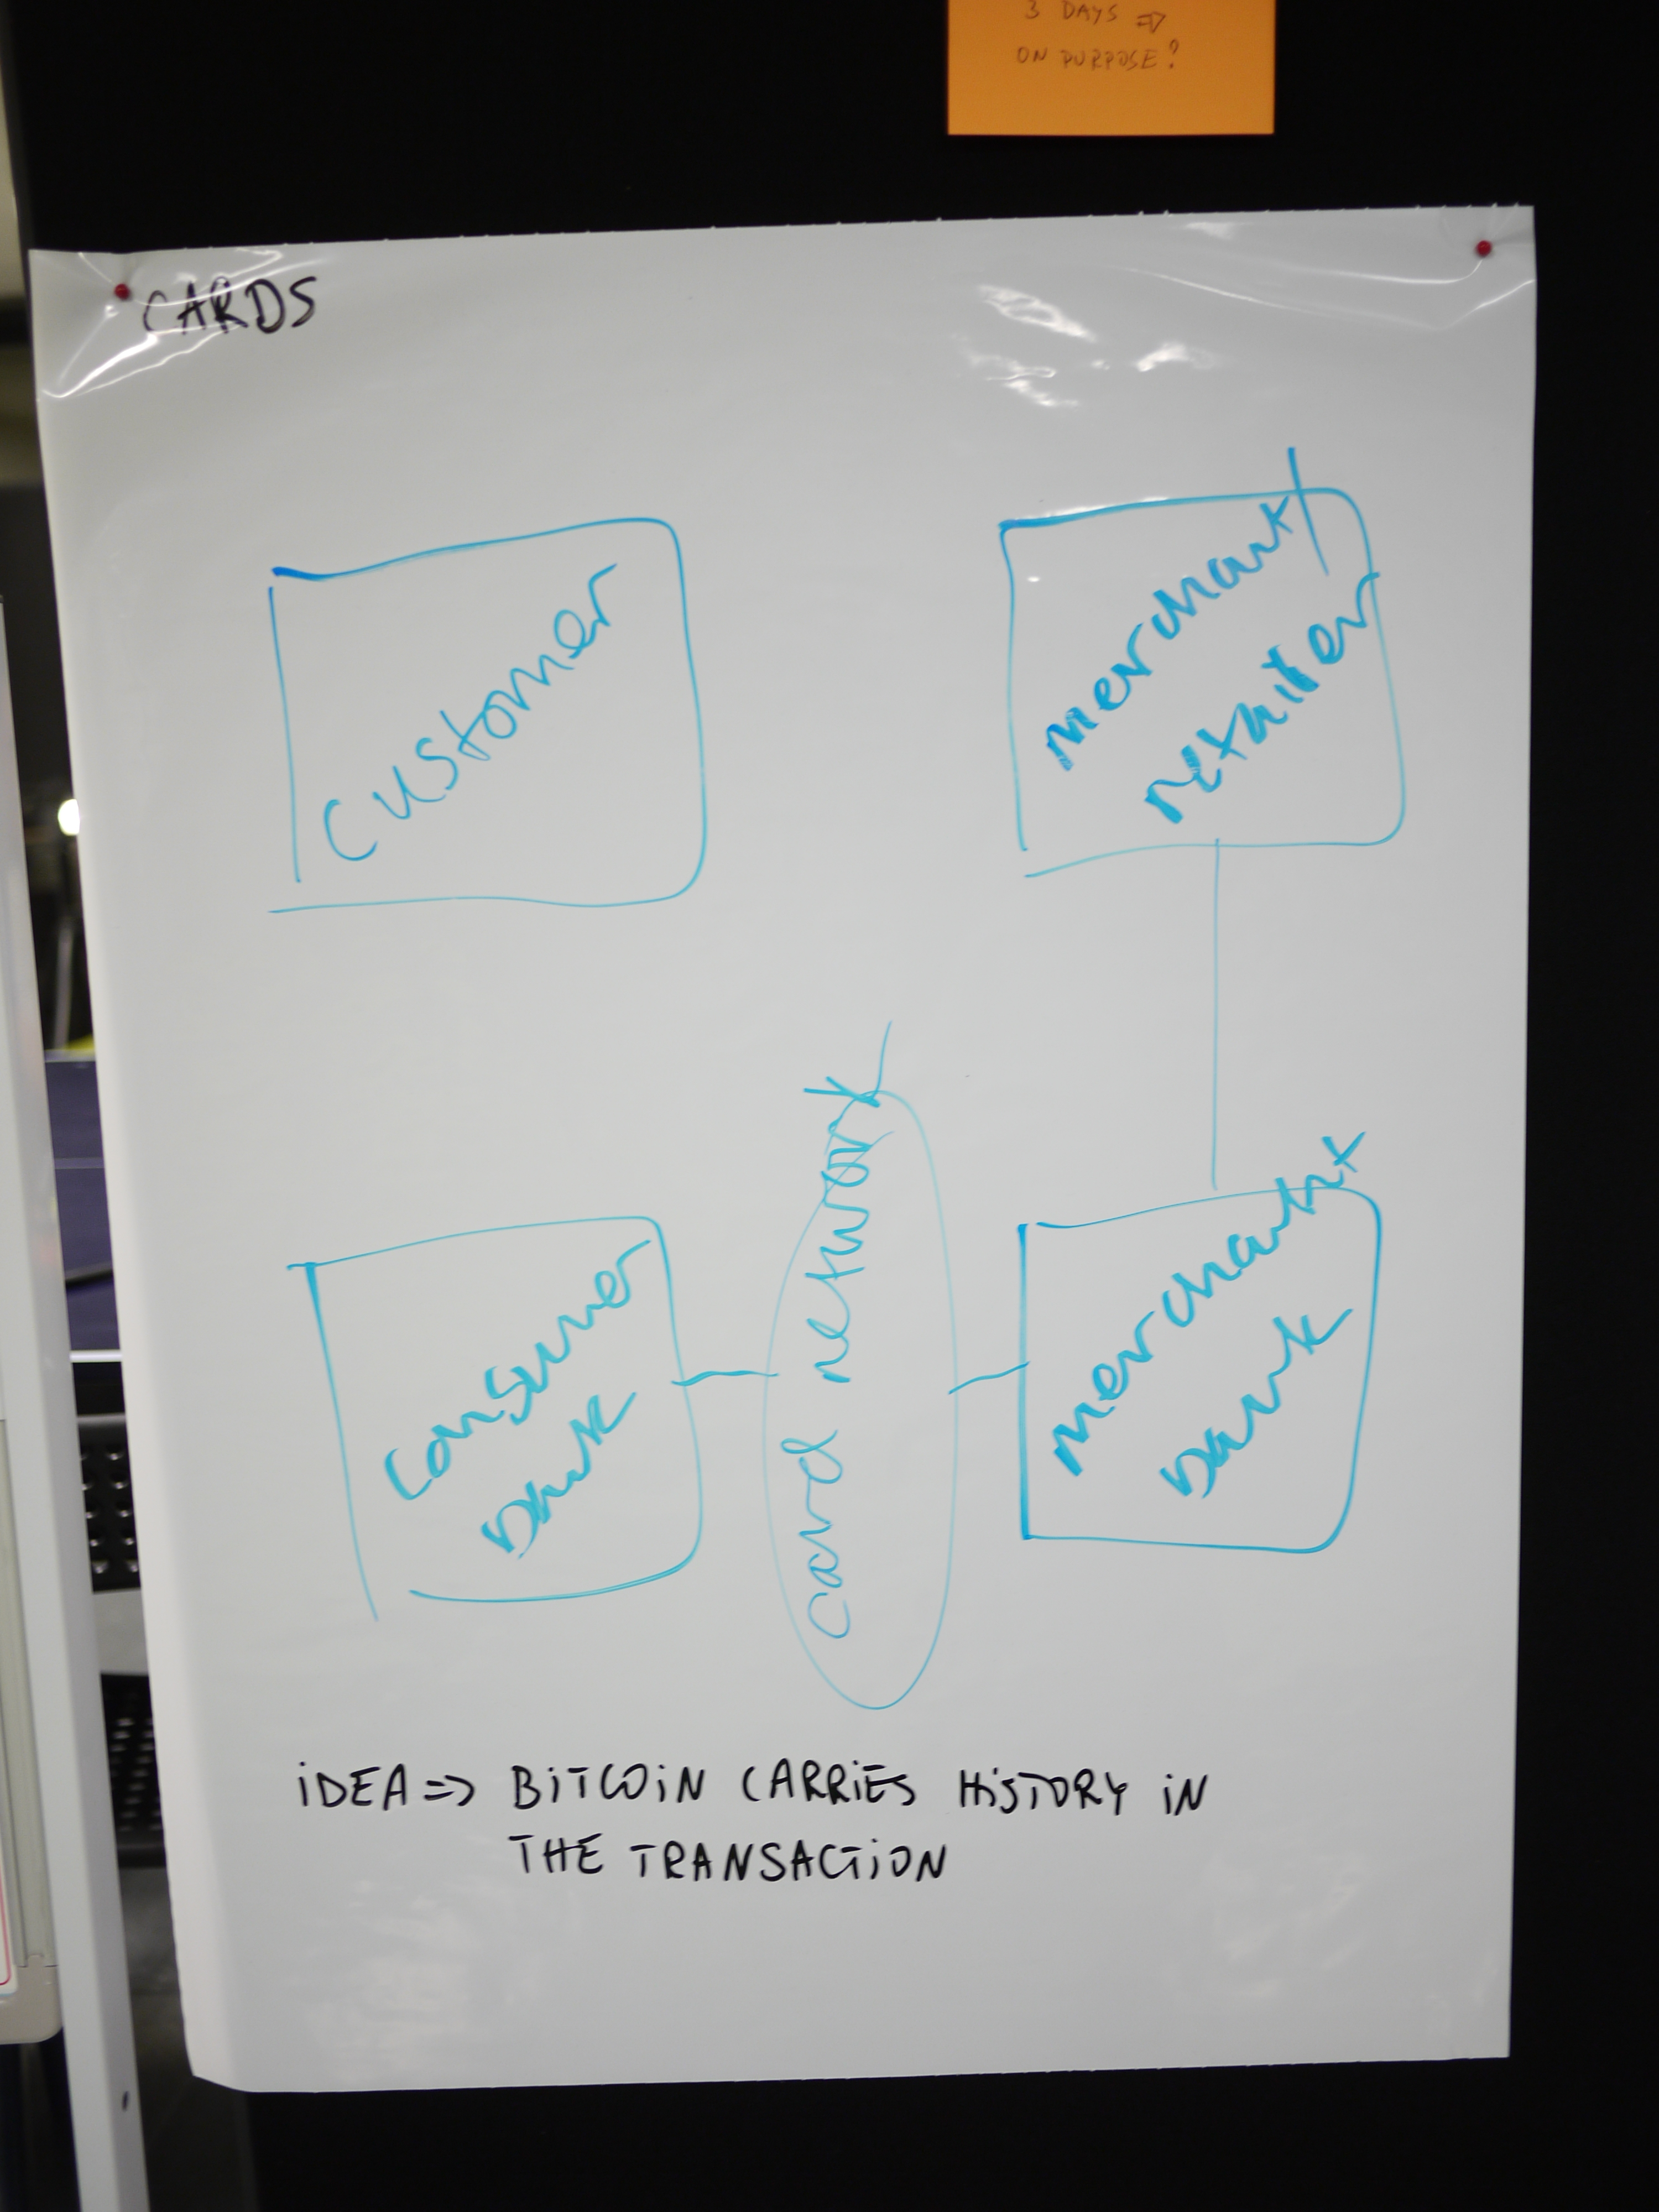 3 DAYS ⇒
ON PURPOSE?
CARDS
customer
merchant
retailer
consumer
bank
card network
merchant
bank
iDEA => BiTCOiN CARRiES HiSTORY iN
THE TRANSACTiON